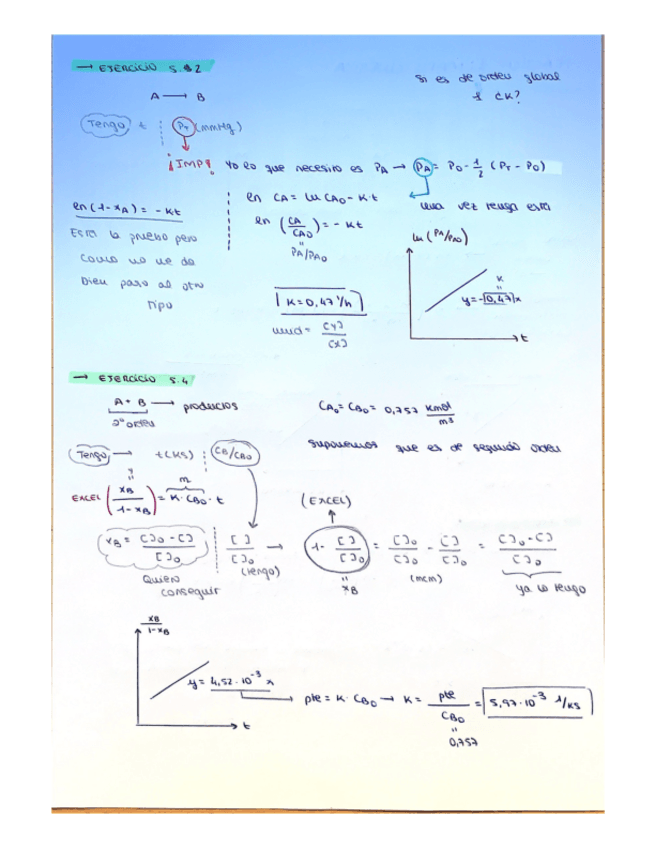 → EJERCICIO 5.2
Si es de orden global
1 ¿K?
A → B
Tengo t PT (mmHg)
¡IMP! Yo lo que necesito es PA → PA = P0 - 1/2 (PT - P0)
ln (1-xA) = -kt
Esta la pruebo pero
como no me da
bien paso al otro
tipo
ln CA = ln CA0 - K·t
ln (CA/CA0) = -Kt
"
PA/PA0
una vez tenga esta
ln (PA/PA0)
K
"
y = -0,47x
t
K = 0,47 1/h
unid = [y]/[x]
→ EJERCICIO 5.4
A + B → productos
2º orden
CA0 = CB0 = 0,757 Kmol/m³
Tengo → t(ks) CB/CB0
suponemos que es de segundo orden
?
m
EXCEL (xB/1-xB) = K·CB0·t
(EXCEL)
xB = [ ]0 - [ ]/[ ]0
[ ]/[ ]0 → 1 - [ ]/[ ]0 = [ ]0/[ ]0 - [ ]/[ ]0 = [ ]0 - [ ]/[ ]0
Quiero
conseguir
(tengo)
"
xB
(mcm)
ya lo tengo
xB/1-xB
y = 4,52·10⁻³ x
t
pte = K·CB0 → K = pte/CB0 = 5,97·10⁻³ 1/ks
"
0,757